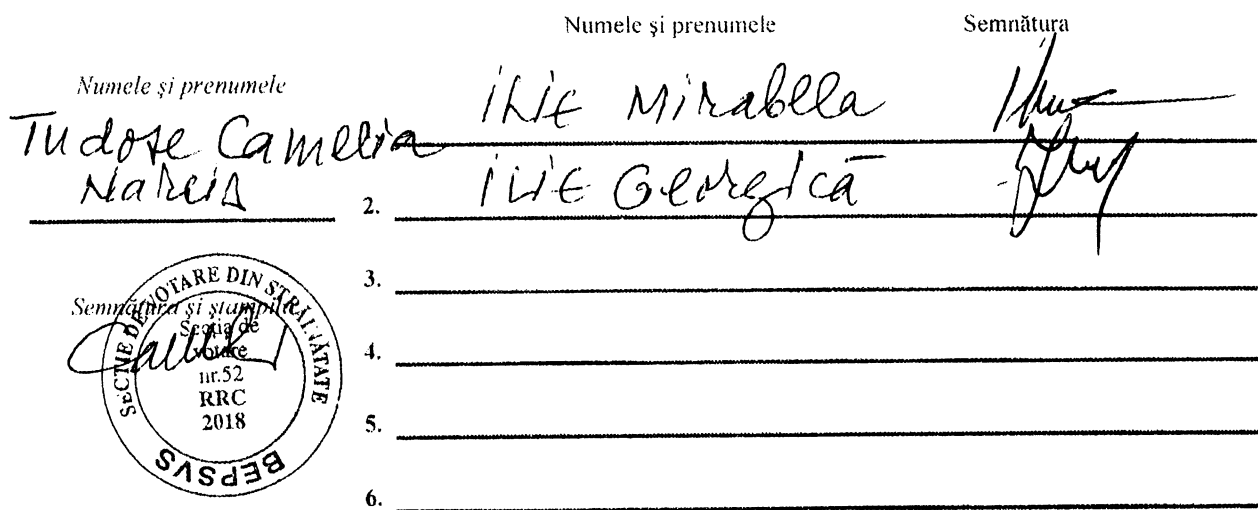 Numele și prenumele Semnătura
Numele și prenumele
ILIE Mirabela
Tudose Camelia
Narcis
2. ILIE Georgică
3.
Semnătura și ștampila
4.
5.
6.
SECȚIE DE VOTARE DIN STRĂINĂTATE
Secția de
votare
nr.52
RRC
2018
BEPSVS